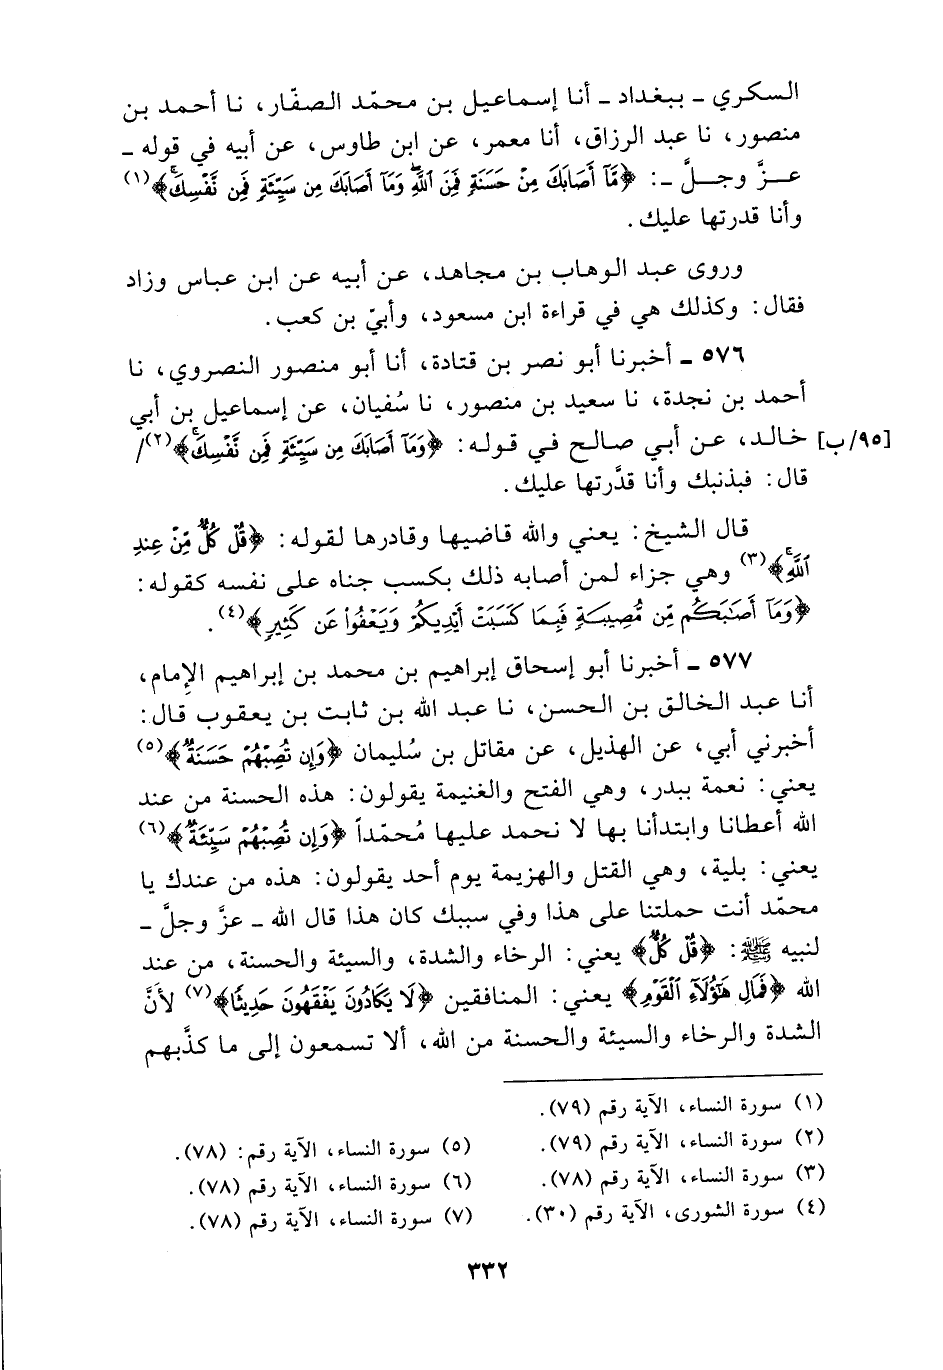 السكري - ببغداد - أنا إسماعيل بن محمّد الصفّار، نا أحمد بن
منصور، نا عبد الرزاق، أنا معمر، عن ابن طاوس، عن أبيه في قوله -
عـزَّ وجـلَّ -: ﴿مَّآ أَصَابَكَ مِنْ حَسَنَةٍ فَمِنَ ٱللَّهِۖ وَمَآ أَصَابَكَ مِن سَيِّئَةٍ فَمِن نَّفْسِكَۚ﴾(١)
وأنا قدرتها عليك.
وروى عبد الوهاب بن مجاهد، عن أبيه عن ابن عباس وزاد
فقال: وكذلك هي في قراءة ابن مسعود، وأبيّ بن كعب.
٥٧٦ - أخبرنا أبو نصر بن قتادة، أنا أبو منصور النصروي، نا
أحمد بن نجدة، نا سعيد بن منصور، نا سُفيان، عن إسماعيل بن أبي
[٩٥/ب] خالد، عن أبي صالح في قوله: ﴿وَمَآ أَصَابَكَ مِن سَيِّئَةٍ فَمِن نَّفْسِكَۚ﴾(٢)/
قال: فبذنبك وأنا قدَّرتها عليك.
قال الشيخ: يعني والله قاضيها وقادرها لقوله: ﴿قُلْ كُلٌّ مِّنْ عِندِ
ٱللَّهِۚ﴾(٣) وهي جزاء لمن أصابه ذلك بكسب جناه على نفسه كقوله:
﴿وَمَآ أَصَٰبَكُم مِّن مُّصِيبَةٍ فَبِمَا كَسَبَتْ أَيْدِيكُمْ وَيَعْفُوا۟ عَن كَثِيرٍ﴾(٤).
٥٧٧ - أخبرنا أبو إسحاق إبراهيم بن محمد بن إبراهيم الإمام،
أنا عبد الخالق بن الحسن، نا عبد الله بن ثابت بن يعقوب قال:
أخبرني أبي، عن الهذيل، عن مقاتل بن سُليمان ﴿وَإِن تُصِبْهُمْ حَسَنَةٌ﴾(٥)
يعني: نعمة ببدر، وهي الفتح والغنيمة يقولون: هذه الحسنة من عند
الله أعطانا وابتدأنا بها لا نحمد عليها مُحمّداً ﴿وَإِن تُصِبْهُمْ سَيِّئَةٌ﴾(٦)
يعني: بلية، وهي القتل والهزيمة يوم أحد يقولون: هذه من عندك يا
محمّد أنت حملتنا على هذا وفي سببك كان هذا قال الله - عزَّ وجلَّ -
لنبيه ﷺ: ﴿قُلْ كُلٌّ﴾ يعني: الرخاء والشدة، والسيئة والحسنة، من عند
الله ﴿فَمَالِ هَٰٓؤُلَآءِ ٱلْقَوْمِ﴾ يعني: المنافقين ﴿لَا يَكَادُونَ يَفْقَهُونَ حَدِيثًا﴾(٧) لأنَّ
الشدة والرخاء والسيئة والحسنة من الله، ألا تسمعون إلى ما كذَّبهم
(١) سورة النساء، الآية رقم (٧٩).
(٢) سورة النساء، الآية رقم (٧٩).
(٣) سورة النساء، الآية رقم (٧٨).
(٤) سورة الشورى، الآية رقم (٣٠).
(٥) سورة النساء، الآية رقم: (٧٨).
(٦) سورة النساء، الآية رقم (٧٨).
(٧) سورة النساء، الآية رقم (٧٨).
٣٣٢